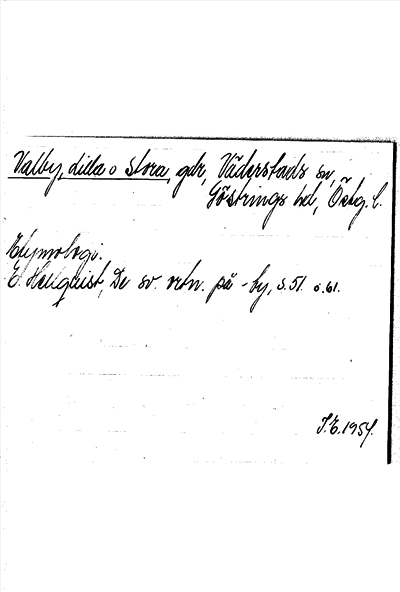 Valby, lilla o Stora, gdr, Väderstads sn,
Göstrings hd, Östg. l.
Etymologi.
E. Hellquist, De sv. ortn. på -by, s. 51 o. 61.
S.E. 1954.